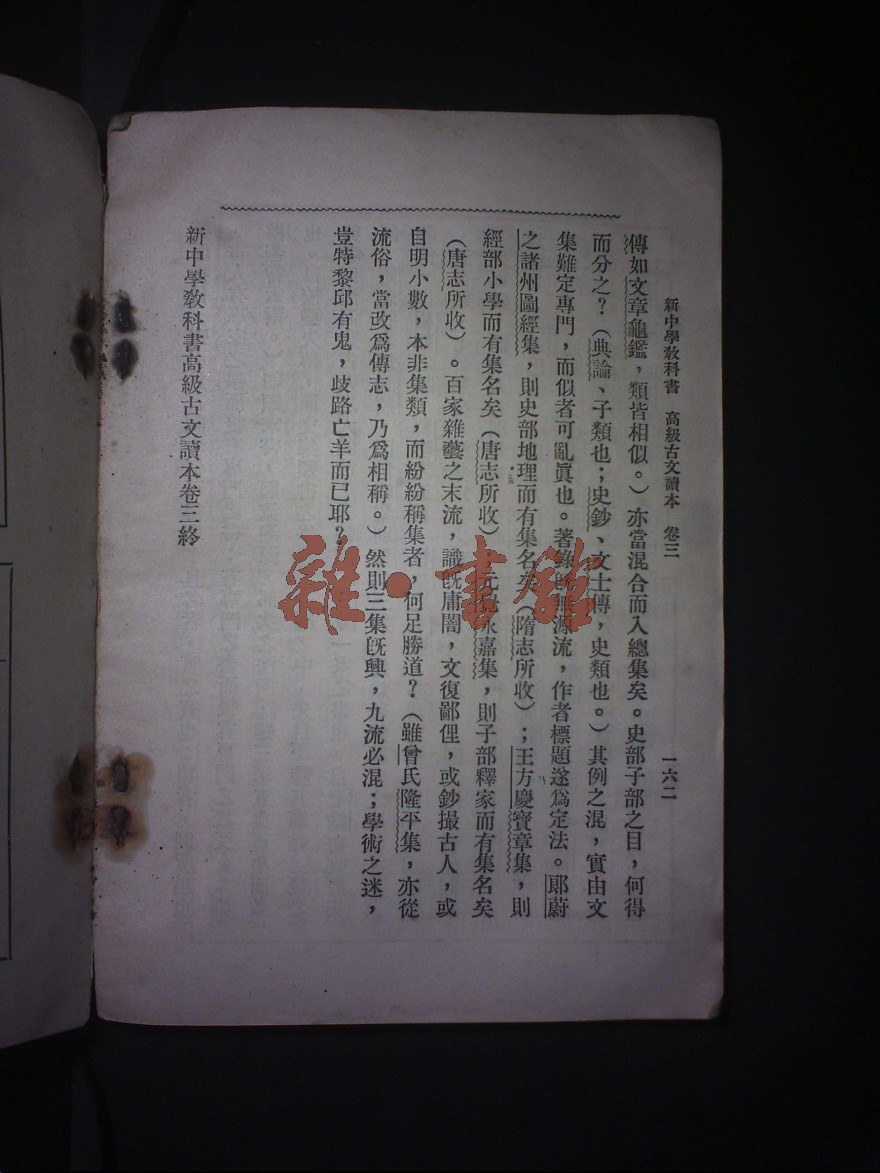 新中學敎科書　高級古文讀本　卷三　一六二
傳如文章龜鑑，類皆相似。）亦當混合而入總集矣。史部子部之目，何得
而分之？（典論、子類也；史鈔、文士傳，史類也。）其例之混，實由文
集難定專門，而似者可亂眞也。著錄旣無源流，作者標題遂爲定法。郞蔚
之諸州圖經集，則史部地理而有集名矣（隋志所收）；王方慶寶章集，則
經部小學而有集名矣（唐志所收）；元覺永嘉集，則子部釋家而有集名矣
（唐志所收）。百家雜藝之末流，識旣庸闇，文復鄙俚，或鈔撮古人，或
自明小數，本非集類，而紛紛稱集者，何足勝道？（雖曾氏隆平集，亦從
流俗，當改爲傳志，乃爲相稱。）然則三集旣興，九流必混；學術之迷，
豈特黎邱有鬼，歧路亡羊而已耶？
新中學敎科書高級古文讀本卷三終
雜·書館